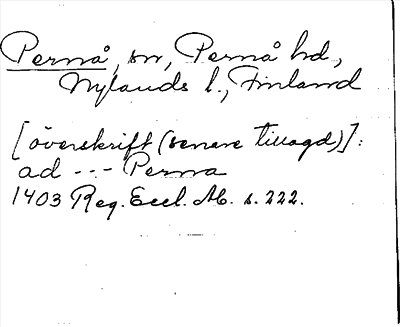 Pernå, sn, Pernå hd,
Nylands l., Finland
[överskrift (senare tillagd)]:
ad --- Perna
1403 Reg. Eccl. Ab. s. 222.